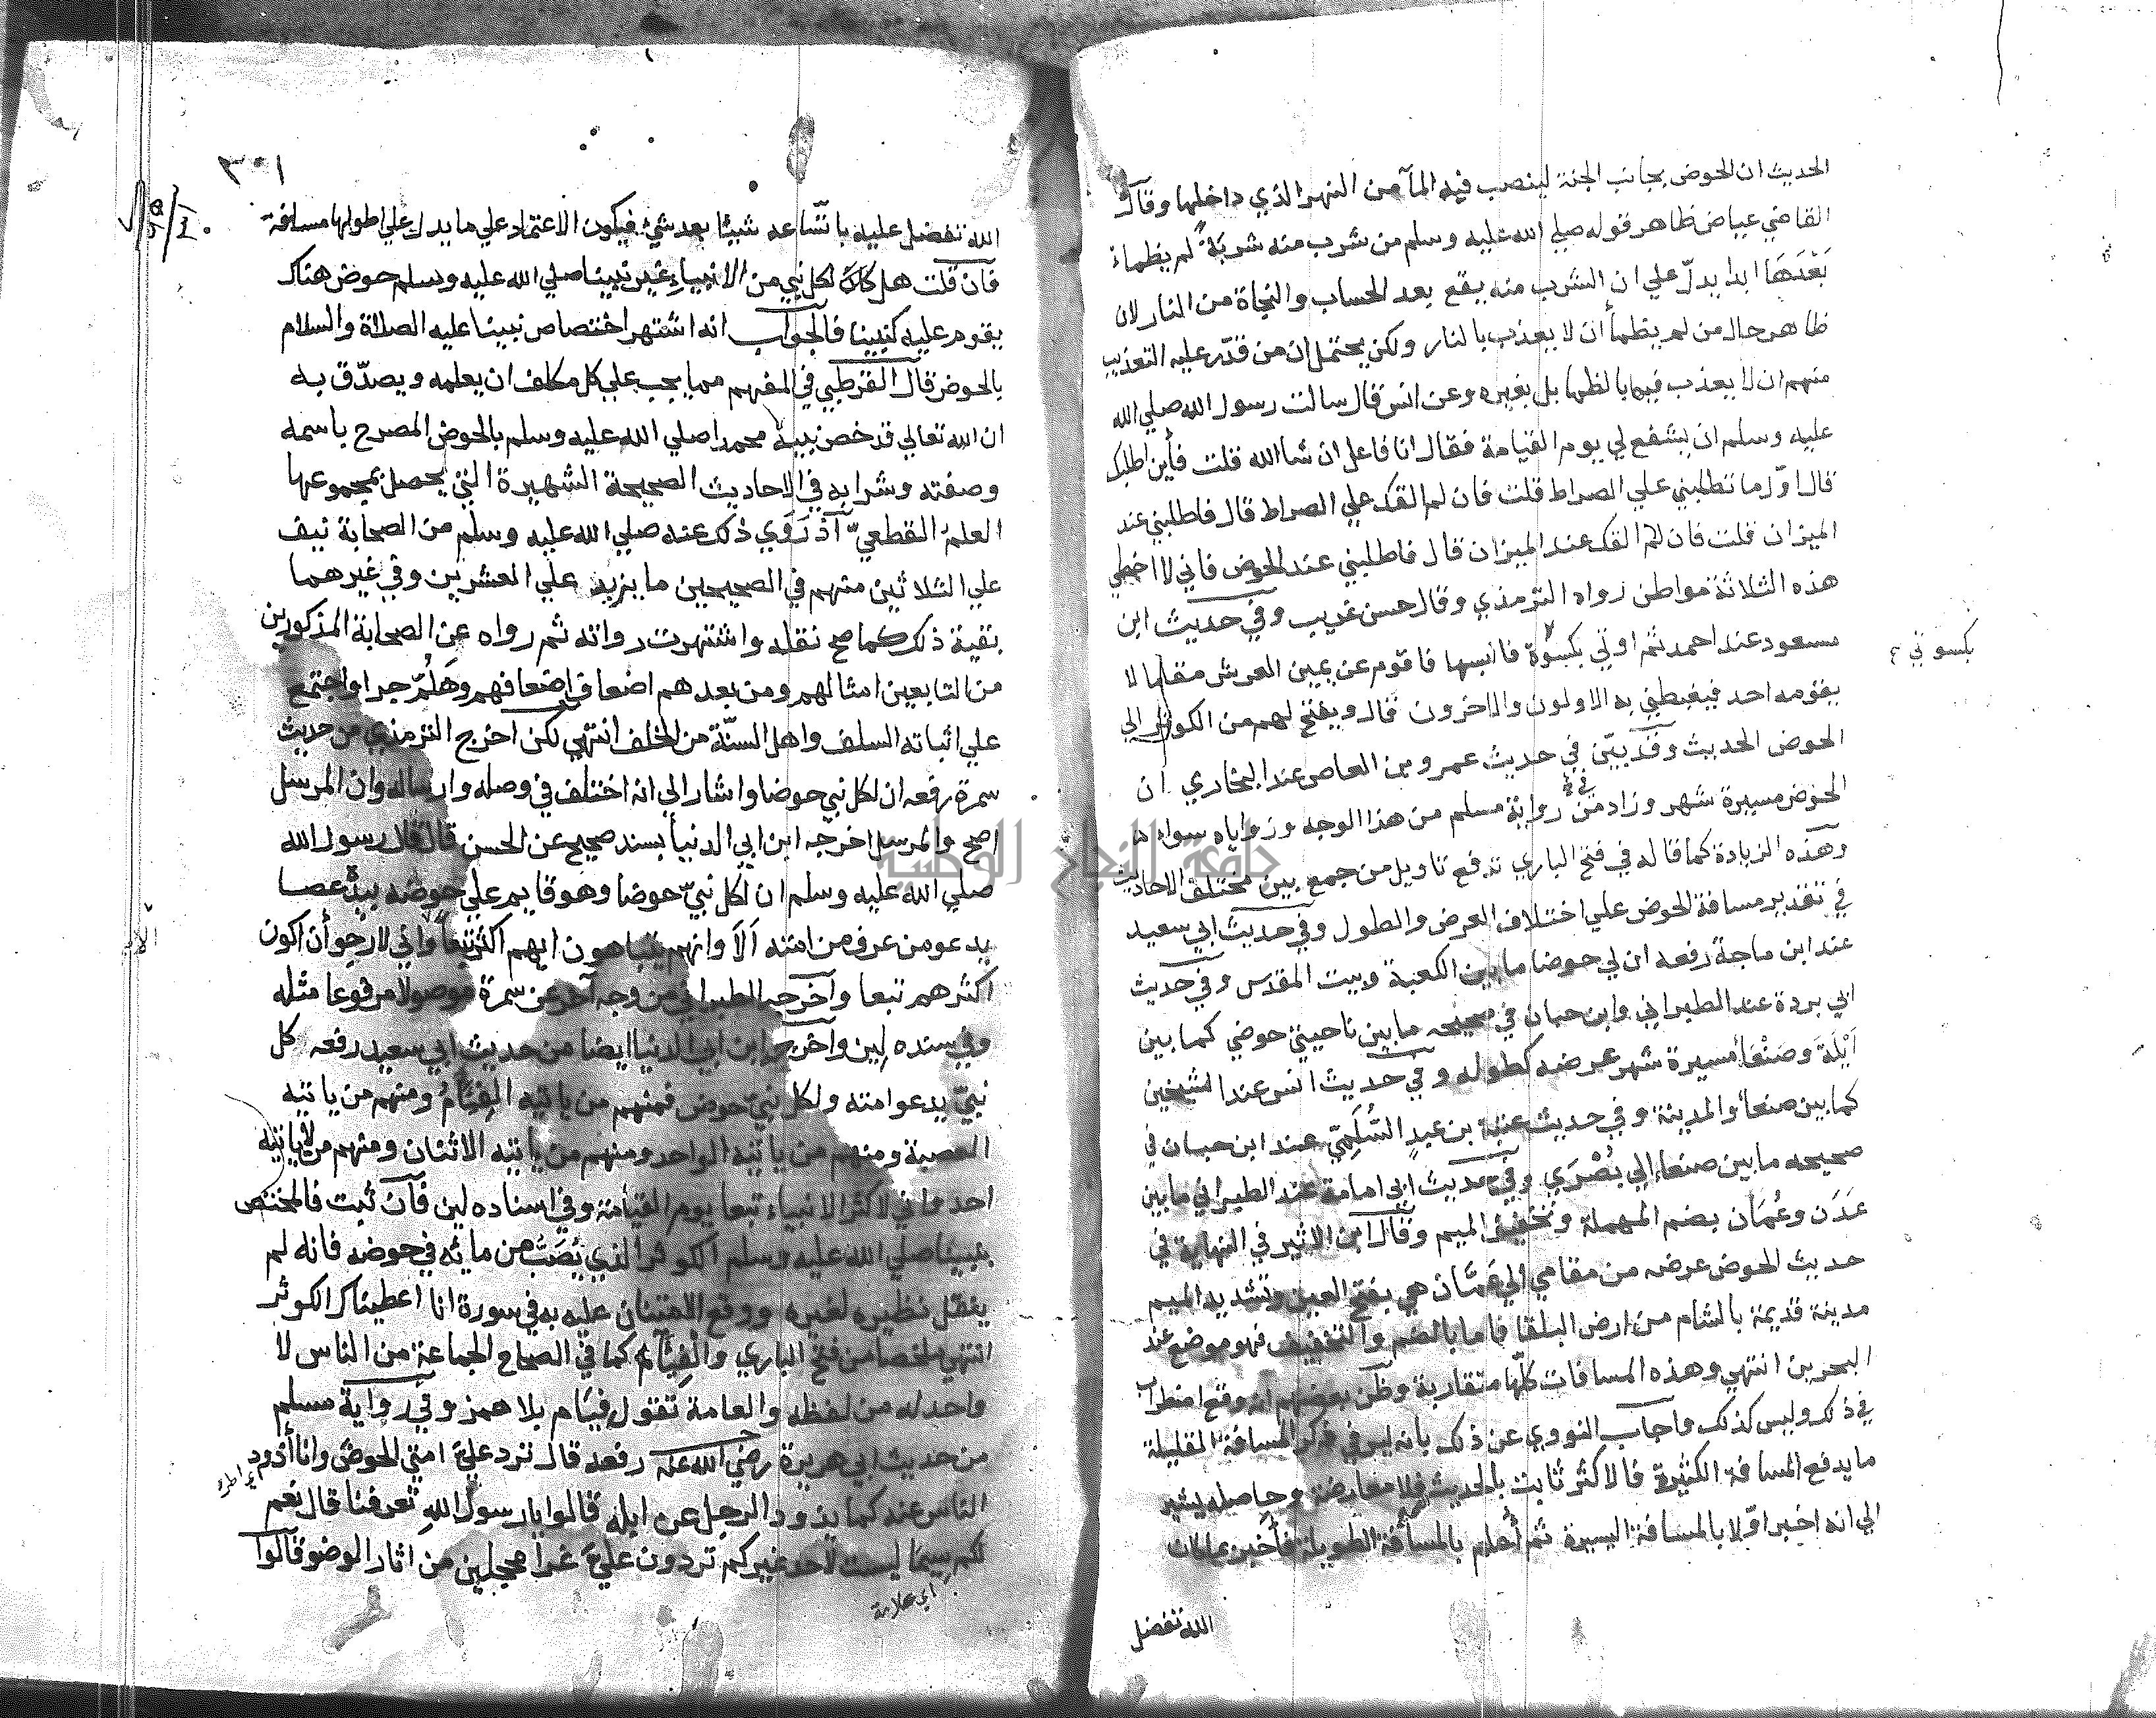 الحديث ان الحوض بجانب الجنة لينصب فيه المآ من النهر الذي داخلها وقال
القاضي عياض ظاهر قوله صلي الله عليه وسلم من شرب منه شربة لم يظماء
بَعْدَهَا ابدا يدلّ علي ان الشرب منه يقع بعد الحساب والنجاة من النار لان
ظاهر حال من لم يظمأ ان لا يعذب بالنار ولكن يحتمل ان من قدّر عليه التعذيب
منهم ان لا يعذب فيها بالظما بل بغيره وعن انس قال سالت رسول الله صلي الله
عليه وسلم ان يشفع لي يوم القيامة فقال انا فاعل ان شا الله قلت فأين اطلبك
قال اوّل ما تطلبني علي الصراط قلت فان لم القك علي الصراط قال فاطلبني عند
الميزان قلت فان لم القك عند الميزان قال فاطلبني عند الحوض فاني لا اخطي
هذه الثلاثة مواطن رواه الترمذي وقال حسن غريب وفي حديث ابن
مسعود عند احمد ثم اوتي بكسوة فالبسها فاقوم عن يمين العرش مقاما لا
بكسوتي
يقومه احد فيغبطني به الاولون والاخرون قال ويفتح لهم من الكوثر الي
الحوض الحديث وقد بيّن في حديث عمرو بن العاص عند البخاري ان
الحوض مسيرة شهر وزاد في رواية مسلم من هذا الوجه وزواياه سواء
وهذه الزيادة كما قاله في فتح الباري تدفع تاويل من جمع بين مختلف الاحاديث
في تقدير مسافة الحوض علي اختلاف العرض والطول وفي حديث ابي سعيد
عند ابن ماجة رفعه ان لي حوضا ما بين الكعبة وبيت المقدس وفي حديث
ابي بردة عند الطبراني وابن حبان في صحيحه ما بين ناحيتي حوضي كما بين
اَيْلَةَ وصَنْعَا مسيرة شهر عرضه كطوله وفي حديث انس عند الشيخين
كما بين صنعا والمدينة وفي حديث عتبة بن عبدٍ السُّلَمِيّ عند ابن حبان في
صحيحه ما بين صنعاء الي بُصْرَي وفي حديث ابي امامة عند الطبراني ما بين
عَدَن وعُمَان بضم المهملة وتخفيف الميم وقال ابن الاثير في النهاية في
حديث الحوض عرضه من مقامي الي عَمَّان هي بفتح العين وتشديد الميم
مدينة قديمة بالشام من ارض البلقا فاما بالضم والتخفيف فهو موضع عند
البحرين انتهي وهذه المسافات كلّها متقاربة وظن بعضهم انه وقع اضطراب
في ذلك وليس كذلك واجاب النووي عن ذلك بانه ليس في ذكر المسافة القليلة
ما يدفع المسافة الكثيرة فالاكثر ثابت بالحديث فلا معارضة وحاصله يشير
الي انه اخبر اوّلا بالمسافة اليسيرة ثم أعلم بالمسافة الطويلة فأخبر بما كان
الله تفضل
٣٠١
الله تفضل عليه باتّساعه شيئا بعد شيئ فيكون الاعتماد علي ما يدل علي اطولها مسافة
فان قلت هل كان لكل نبي من الانبياء غير نبينا صلي الله عليه وسلم حوض هناك
يقوم عليه كنبينا فالجواب انه اشتهر اختصاص نبينا عليه الصلاة والسلام
بالحوض قال القرطبي في المفهم مما يجب علي كل مكلف ان يعلمه ويصدّق به
ان الله تعالي قد خص نبيه محمدا صلي الله عليه وسلم بالحوض المصرح باسمه
وصفته وشرابه في الاحاديث الصحيحة الشهيرة التي يحصل بمجموعها
العلم القطعيّ اذ رَوَي ذلك عنه صلي الله عليه وسلم من الصحابة نيف
علي الثلاثين منهم في الصحيحين ما يزيد علي العشرين وفي غيرهما
بقية ذلك كما صح نقله واشتهرت رواته ثم رواه عن الصحابة المذكورين
من التابعين امثالهم ومن بعدهم اضعاف اضعافهم وهَلُمّ جرا واجتمع
علي اثباته السلف واهل السنّة من الخلف انتهي لكن اخرج الترمذي من حديث
سمرة رفعه ان لكل نبي حوضا واشار الي انه اختلف في وصله وارساله وان المرسل
اصح والمرسل اخرجه ابن ابي الدنيا بسند صحيح عن الحسن قال قال رسول الله
صلي الله عليه وسلم ان لكل نبيّ حوضا وهو قايم علي حوضه بيده عصا
يدعو من عرف من امته اَلاَ وانهم يتباهون ايهم اكثر تبعا واني لارجو أن اكون
اكثرهم تبعا واخرجه الطبراني من وجه آخر عن سمرة موصولا مرفوعا مثله
وفي سنده لِين واخرج ابن ابي الدنيا ايضا من حديث ابي سعيد رفعه كل
نبيّ يدعو امته ولكل نبيّ حوض فمنهم من ياتيه الفِئامُ ومنهم من ياتيه
العصبة ومنهم من ياتيه الواحد ومنهم من ياتيه الاثنان ومنهم من لا ياتيه
احد واني لاكثر الانبياء تبعا يوم القيامة وفي اسناده لين فان ثبت فالمختص
بنبينا صلي الله عليه وسلم الكوثر الذي يُصَبُّ من مائه في حوضه فانه لم
ينقل نظيره لغيره ووقع الامتنان عليه به في سورة انا اعطيناك الكوثر
انتهي ملخصا من فتح الباري والفِئام كما في الصحاح الجماعة من الناس لا
واحد له من لفظه والعامة تقول فيام بلا همز وفي رواية مسلم
من حديث ابي هريرة رضي الله عنه رفعه قال ترد عليّ امتي الحوض وانا أذود
الناس عنه كما يذود الرجل عن ابله قالوا يا رسول الله تعرفنا قال نعم
لكم سيما ليست لاحد غيركم تردون عليّ غرا محجلين من اثار الوضو قالوا
اي علامة